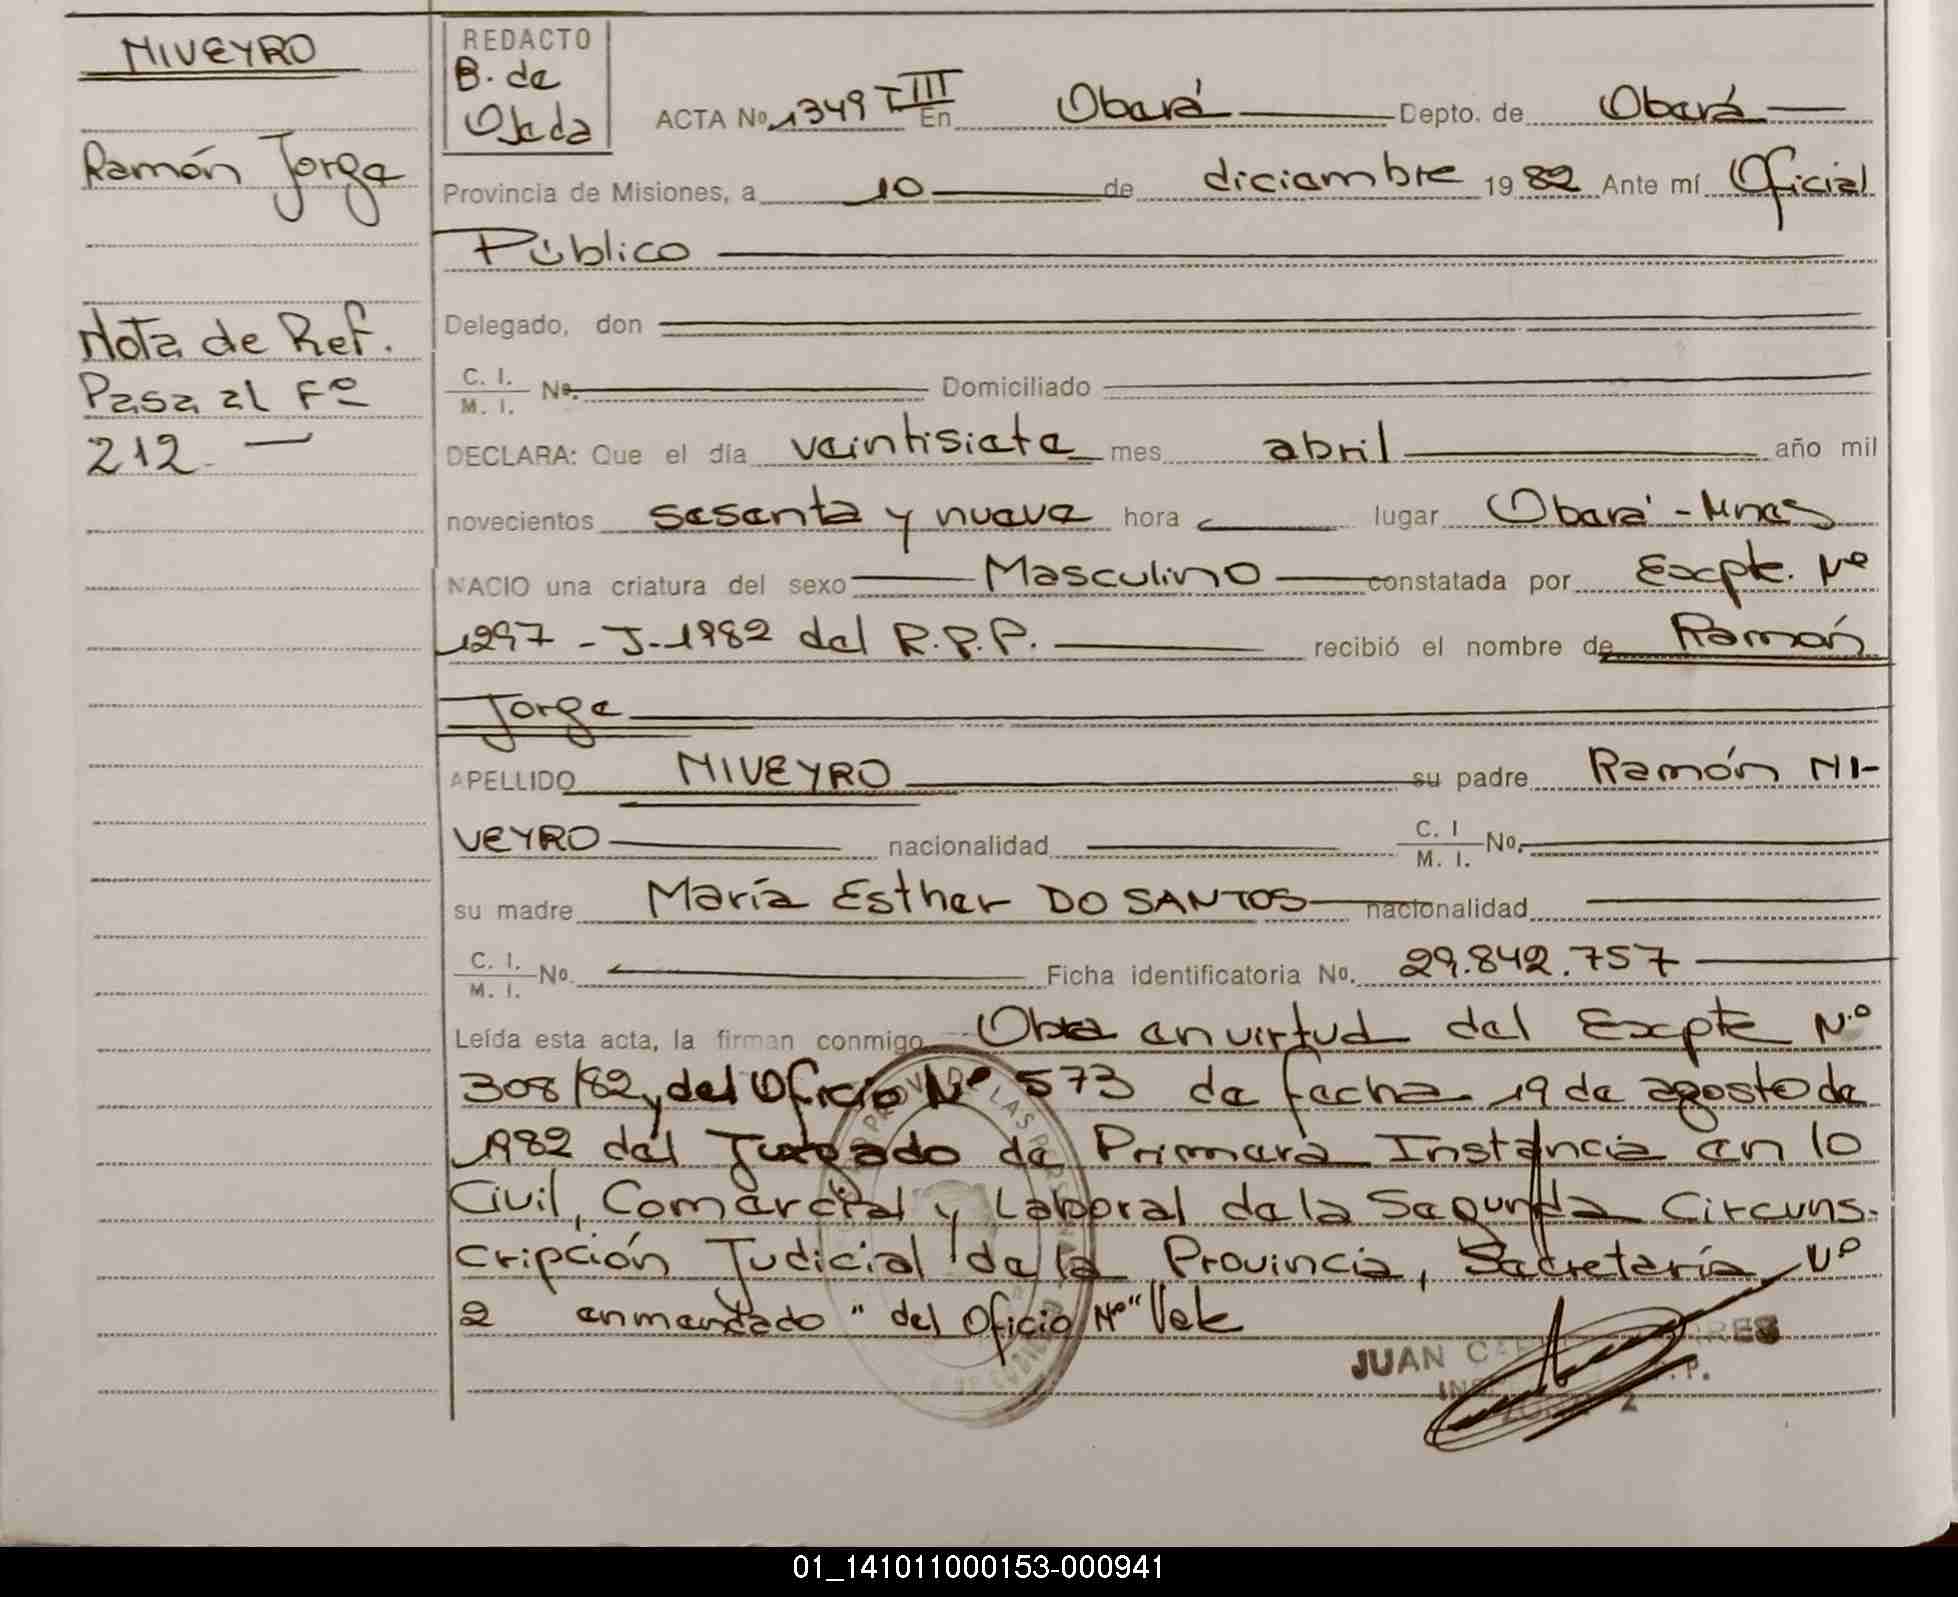 NIVEYRO
Ramón Jorge
Nota de Ref.
Pasa al Fº
212.—
REDACTO
B. de
Ojeda
ACTA Nº 1349 T III En Oberá Depto. de Oberá
Provincia de Misiones, a 10 de diciembre 1982 Ante mí Oficial
Público
Delegado, don
C. I.
M. I. Nº. Domiciliado
DECLARA: Que el día veintisiete mes abril año mil
novecientos sesenta y nueve hora lugar Oberá - Mnes
NACIO una criatura del sexo Masculino constatada por Excpte. Nº
1297 - J - 1982 del R.P.P. recibió el nombre de Ramón
Jorge
APELLIDO NIVEYRO su padre Ramón NI-
VEYRO nacionalidad C. I
M. I. Nº.
su madre María Esther DO SANTOS nacionalidad
C. I.
M. I. Nº. Ficha identificatoria Nº. 29.842.757
Leída esta acta, la firman conmigo Obra en virtud del Excpte N.º
308/82 y del Oficio Nº 573 de fecha 19 de agosto de
1982 del Juzgado de Primera Instancia en lo
Civil, Comercial y Laboral de la Segunda Circuns-
cripción Judicial de la Provincia, Secretaría Nº
2 enmendado "del Oficio Nº" Vale
JUAN
ZONA 2
01_141011000153-000941